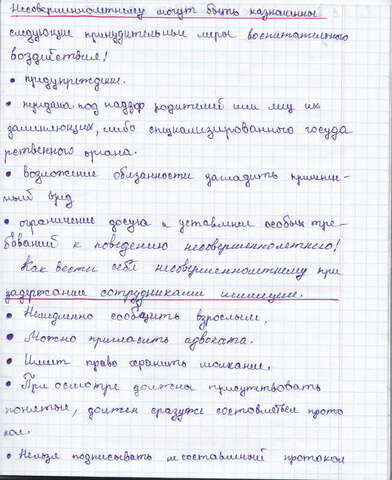 Несовершеннолетнему могут быть назначены
следующие принудительные меры воспитательного
воздействия!
• предупреждение.
• передача под надзор родителей или лиц их
заменяющих, либо специализированного госуда
рственного органа.
• возложение обязанности загладить причинен-
ный вред
• ограничение досуга и установление особых тре-
бований к поведению несовершеннолетнего!
Как вести себя несовершеннолетнему при
задержание сотрудниками милиции.
• Немедленно сообщить взрослым.
• Можно пригласить адвоката.
• Имеет право хранить молчание.
• При осмотре должны присутствовать
понятые, должен сразуже составляться прото
кол.
• Нельзя подписывать составленый протокол